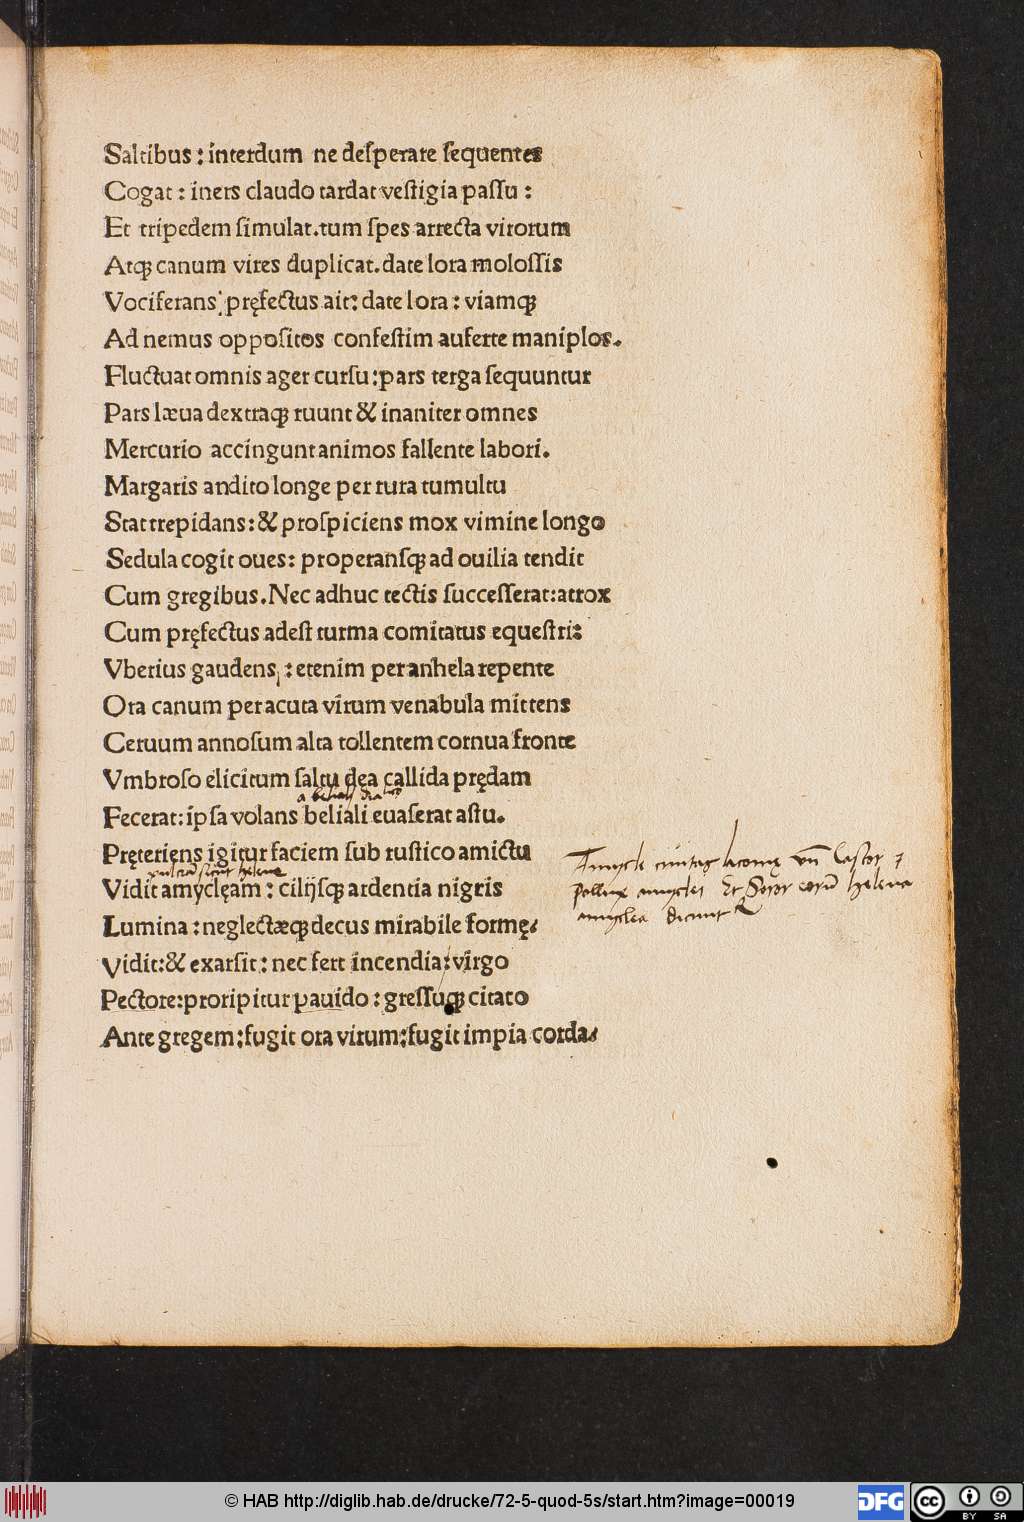 Saltibus: interdum ne deſperate ſequentes
Cogat: iners claudo tardat veſtigia paſſu:
Et tripedem ſimulat. tum ſpes arrecta virorum
Atqꝫ canum vires duplicat. date lora moloſſis
Vociferans, pręfectus ait: date lora: viamqꝫ
Ad nemus oppoſitos confeſtim auferte maniplos.
Fluctuat omnis ager curſu: pars terga ſequuntur
Pars læua dextraqꝫ ruunt & inaniter omnes
Mercurio accingunt animos fallente labori.
Margaris andito longe per rura tumultu
Stat trepidans: & proſpiciens mox vimine longo
Sedula cogit oues: properanſqꝫ ad ouilia tendit
Cum gregibus. Nec adhuc tectis ſucceſſerat: atrox
Cum pręfectus adeſt turma comitatus equeſtri:
Vberius gaudens: etenim per anhela repente
Ora canum per acuta virum venabula mittens
Ceruum annoſum alta tollentem cornua fronte
Vmbroſo elicitum ſaltu dea callida prędam
Fecerat: ipſa volans beliali euaſerat aſtu.
Pręteriens igitur faciem ſub ruſtico amictu
Vidit amyclęam: cilijſqꝫ ardentia nigris
Lumina: neglectæqꝫ decus mirabile formę:
Vidit: & exarſit: nec fert incendia: virgo
Pectore: proripitur pauido: greſſuqꝫ citato
Ante gregem: fugit ora virum: fugit impia corda:
Amycle ciuitas laconię vñ Castor
Pollux amyclei Et Soror eorũ helena
amyclea dicunt
© HAB http://diglib.hab.de/drucke/72-5-quod-5s/start.htm?image=00019
DFG
cc
BY SA